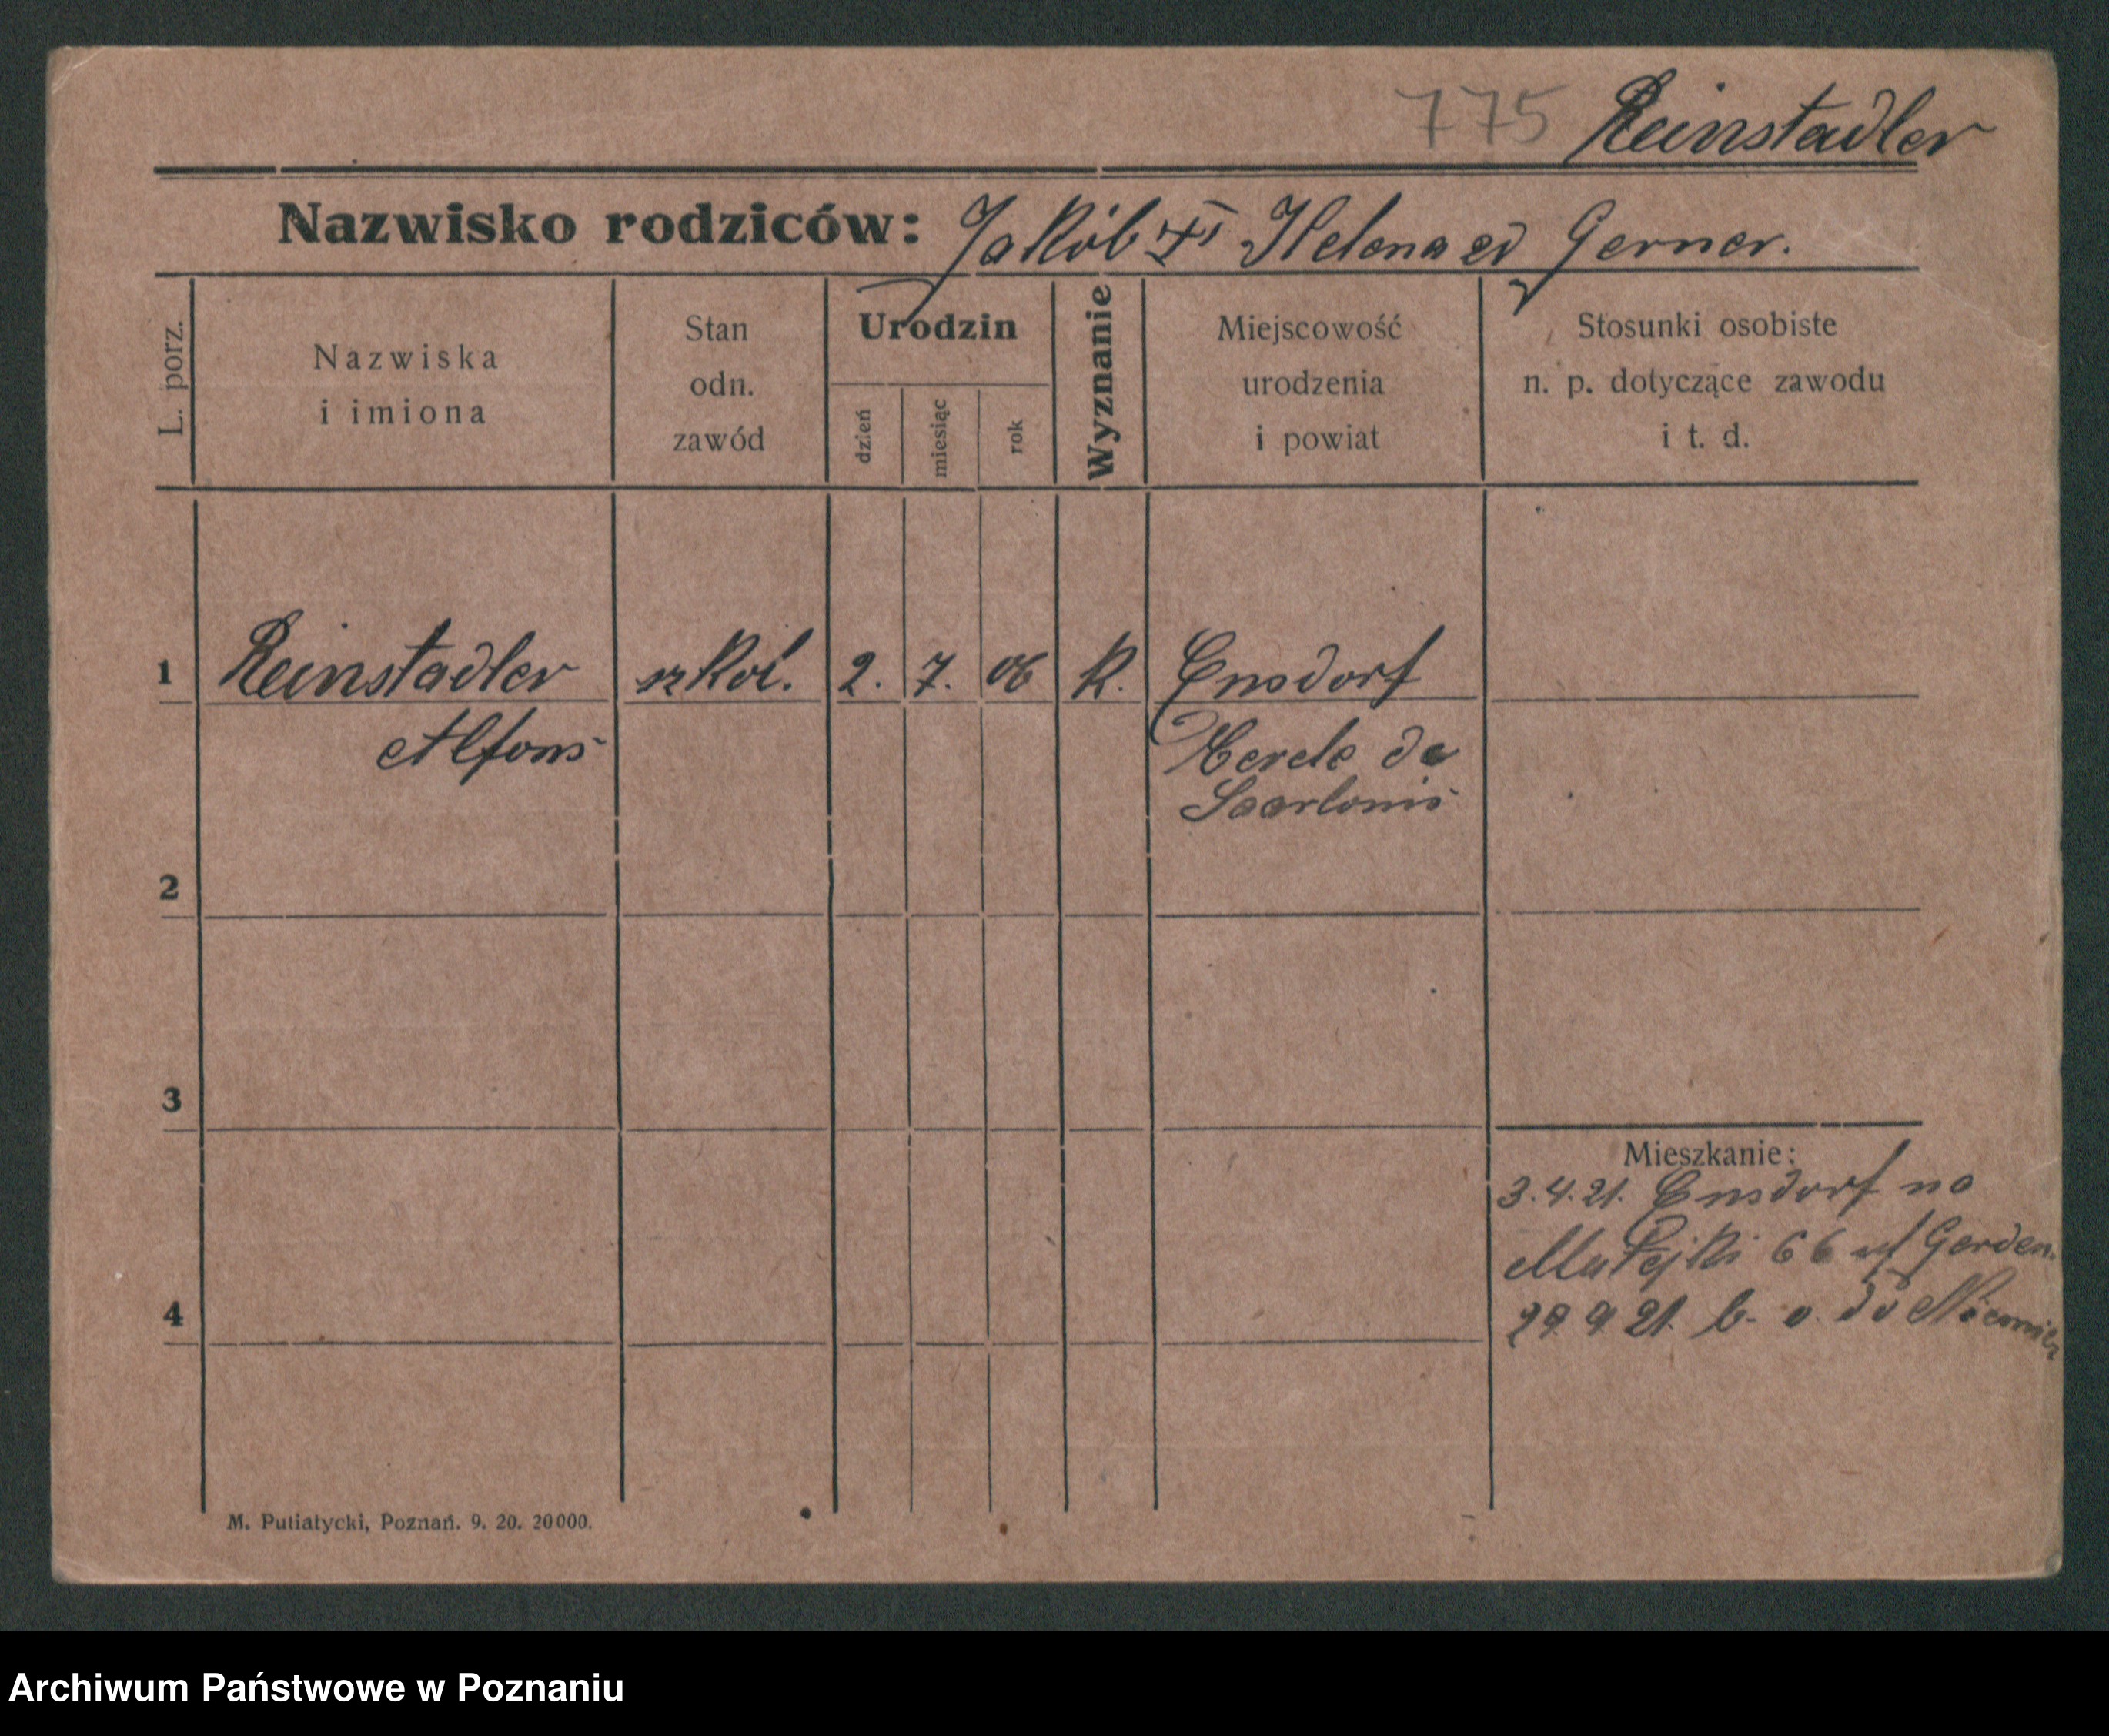 775 Reinstadler
Nazwisko rodziców: Jakób Helena Gerner.
L. porz.
Nazwiska
i imiona
Stan
odn.
zawód
Urodzin
dzień
miesiąc
rok
Wyznanie
Miejscowość
urodzenia
i powiat
Stosunki osobiste
n. p. dotyczące zawodu
i t. d.
1 Reinstadler 2. 7. 06 K. Ensdorf
Alfons
Saarlouis
2
3
4
Mieszkanie:
3.4.21. Ensdorf na
Matejki 66 Gerden.
29 9 21. do Niemiec
M. Putiatycki, Poznań. 9. 20. 20000.
Archiwum Państwowe w Poznaniu